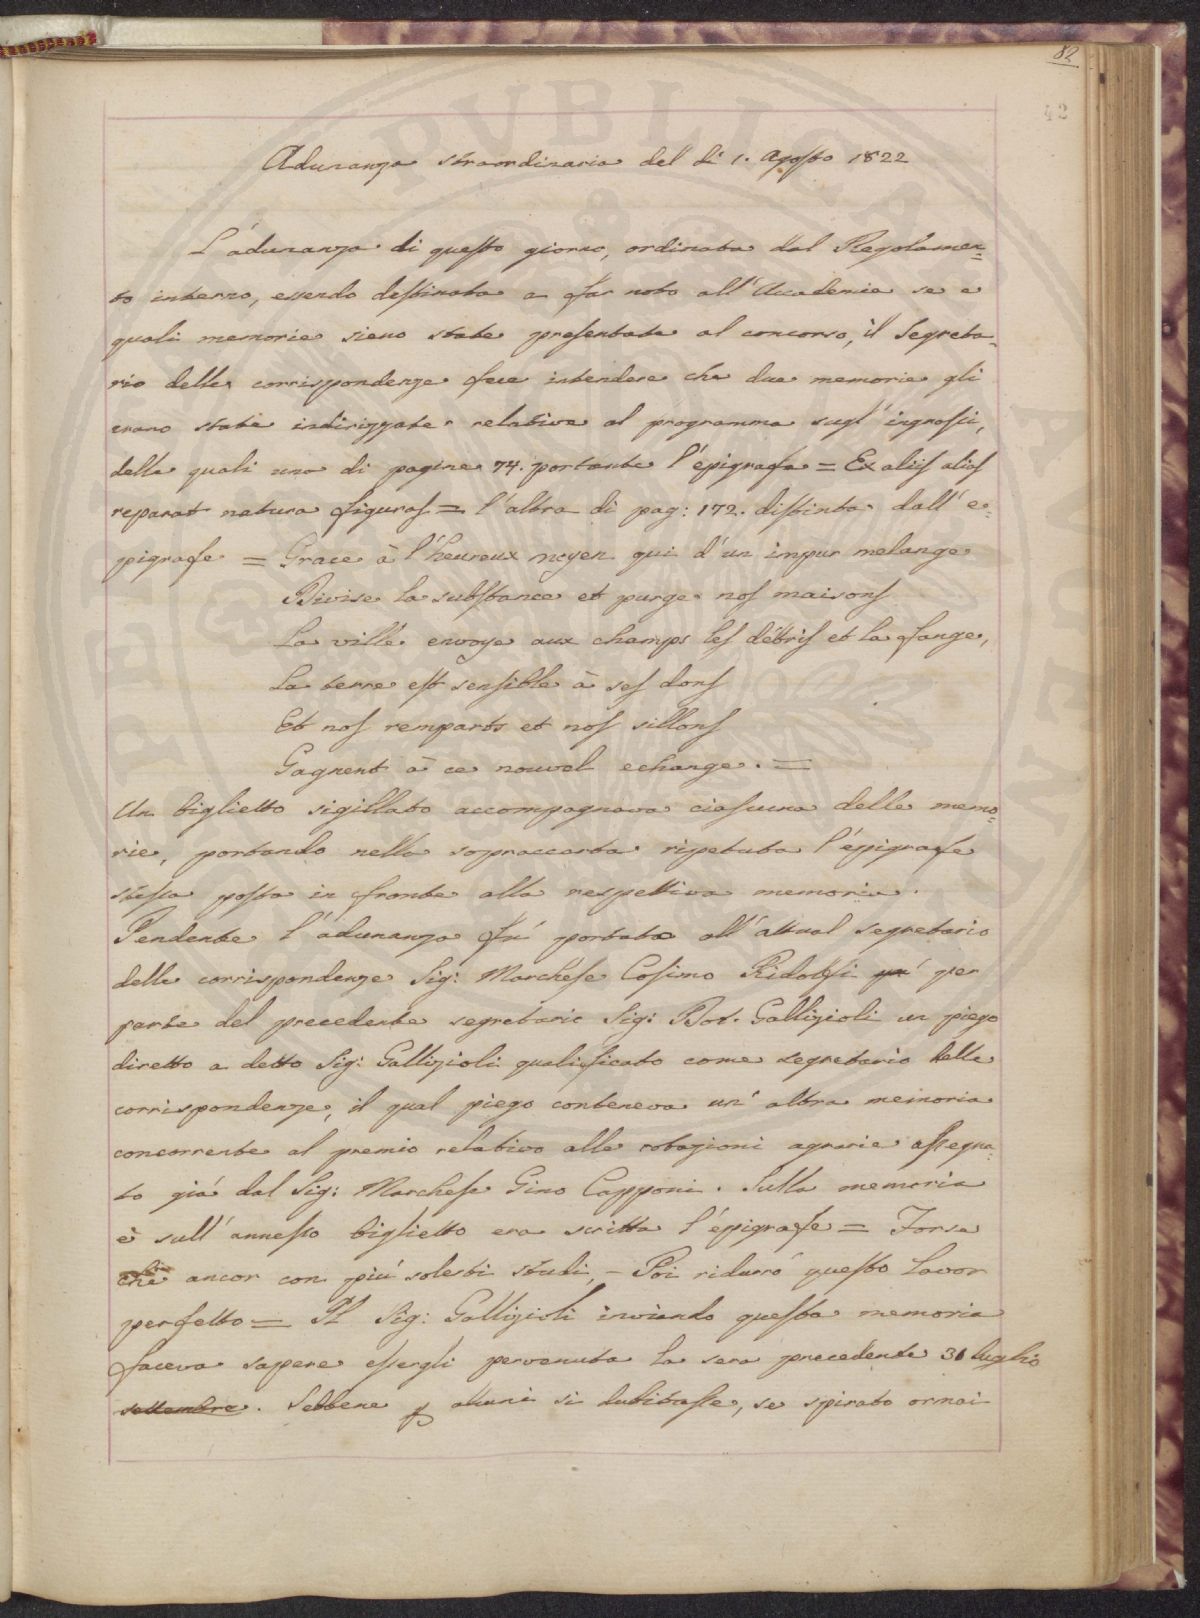 82
42
Adunanza straordinaria del dì 1. Agosto 1822
L'adunanza di questo giorno, ordinata dal Regolamen=
to interno, essendo destinata a far noto all'Accademia se e
quali memorie sieno state presentate al concorso, il Segreta=
rio delle corrispondenze fece intendere che due memorie gli
erano state indirizzate relative al programma sugl'ingrassi,
delle quali una di pagine 74. portante l'epigrafe = Ex aliis alias
reparat natura figuras = l'altra di pag: 172. distinta dall'e=
pigrafe = Grace à l'heureux moyen qui d'un impur melange
Divise la substance et purge nos maisons
La ville envoye aux champs les débris et la fange,
La terre est sensible à ses dons
Et nos remparts et nos sillons
Gagnent à ce nouvel echange. =
Un biglietto sigillato accompagnava ciascuna delle memo=
rie, portando nella sopraccarta ripetuta l'epigrafe
stessa posta in fronte alla respettiva memoria.
Pendente l'adunanza fù portato all'attual segretario
delle corrispondenze Sig: Marchese Cosimo Ridolfi per
parte del precedente segretario Sig: Dot. Gallizioli un piego
diretto a detto Sig: Gallizioli qualificato come segretario delle
corrispondenze, il qual piego conteneva un'altra memoria
concorrente al premio relativo alle rotazioni agrarie assegna=
to già dal Sig: Marchese Gino Capponi. Sulla memoria
e sull'annesso biglietto era scritta l'epigrafe = Forse
che ancor con più solerti studi, - Poi ridurrò questo Lavor
perfetto = Il Sig: Gallizioli inviando questa memoria
faceva sapere essergli pervenuta la sera precedente 31 luglio
settembre. Sebbene alcuni si dubitasse, se spirato ormai
PUBLICAE